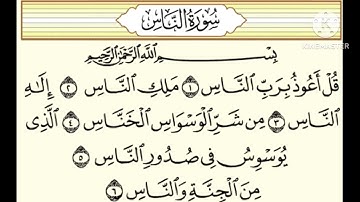 سُورَةُ النَّاسِ
KINEMASTER
بِسْمِ اللَّهِ الرَّحْمَٰنِ الرَّحِيمِ
قُلْ أَعُوذُ بِرَبِّ النَّاسِ ۝١ مَلِكِ النَّاسِ ۝٢ إِلَٰهِ
النَّاسِ ۝٣ مِن شَرِّ الْوَسْوَاسِ الْخَنَّاسِ ۝٤ الَّذِي
يُوَسْوِسُ فِي صُدُورِ النَّاسِ ۝٥
مِنَ الْجِنَّةِ وَالنَّاسِ ۝٦